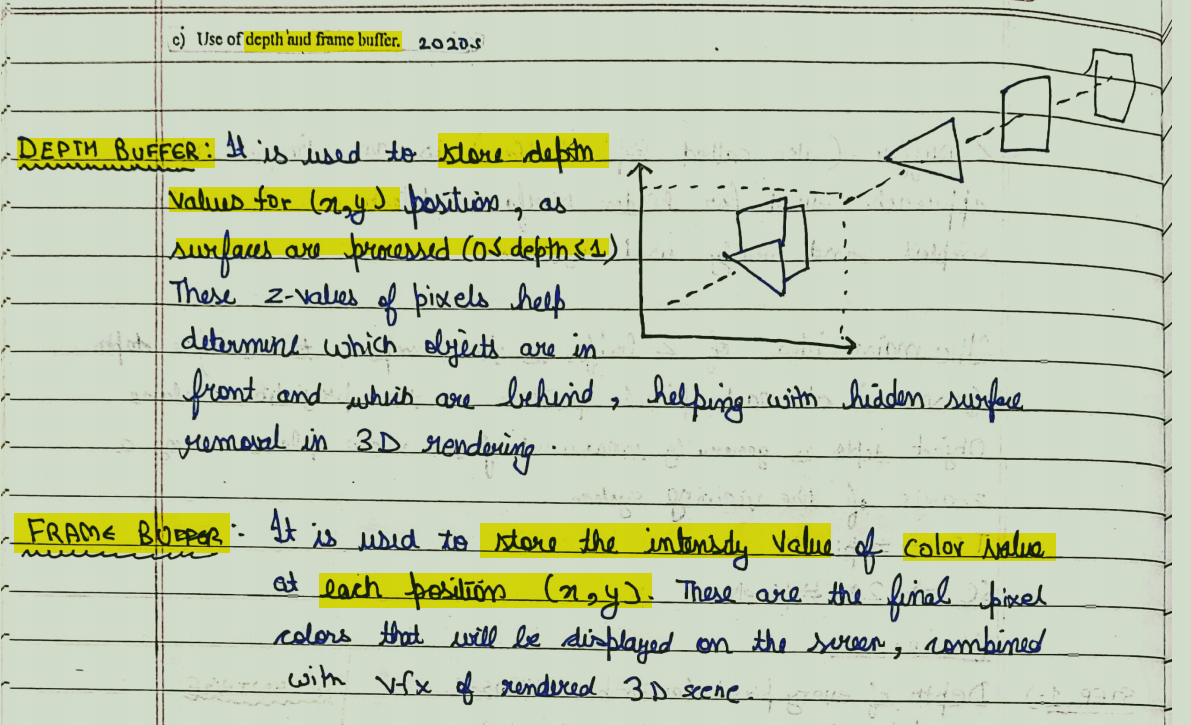 c) Use of depth and frame buffer. 2020s
DEPTH BUFFER: It is used to store depth
values for (x,y) position, as
surfaces are processed (0≤ depth ≤1)
These z-values of pixels help
determine which objects are in
front and which are behind, helping with hidden surface
removal in 3D rendering.
FRAME BUFFER: It is used to store the intensity value of color value
at each position (x,y). These are the final pixel
colors that will be displayed on the screen, combined
with vfx of rendered 3D scene.